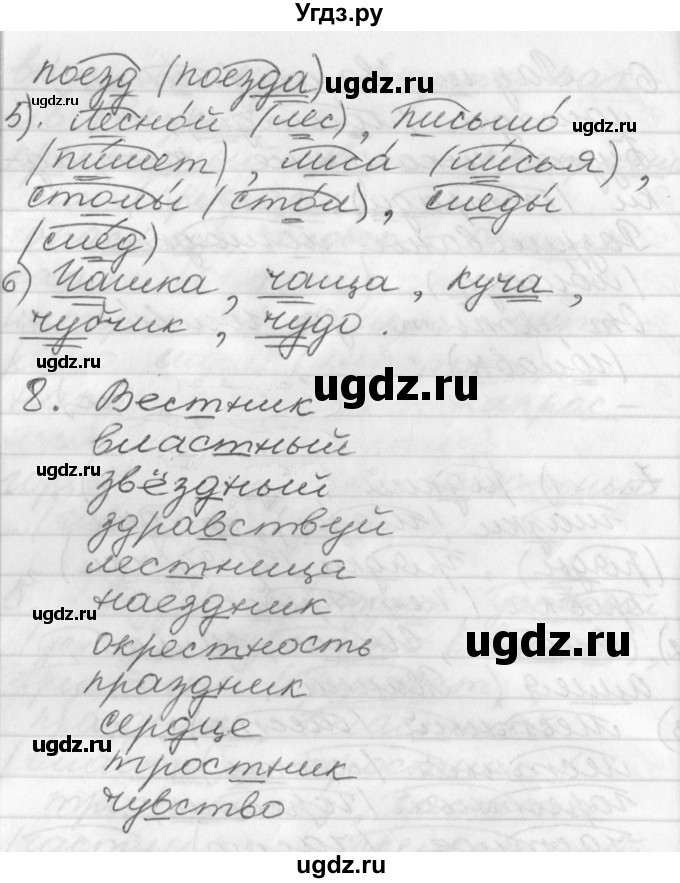 Угдз.ру
поезд (поезда) ugdz.ru
5). лесной (лес), письмо ugdz.ru
(пишет), лиса (лисья),
столы (стол), следы
(след)
6) Чашка, чаща, куча,
чубчик, чудо.
ugdz.ru
ugdz.ru
8. Вестник
властный
ugdz.ru
звёздный
здравствуй
лестница
наездник
ugdz.ru
окрестность ugdz.ru
праздник
сердце
ugdz.ru
тростник
чувство
ugdz.ru